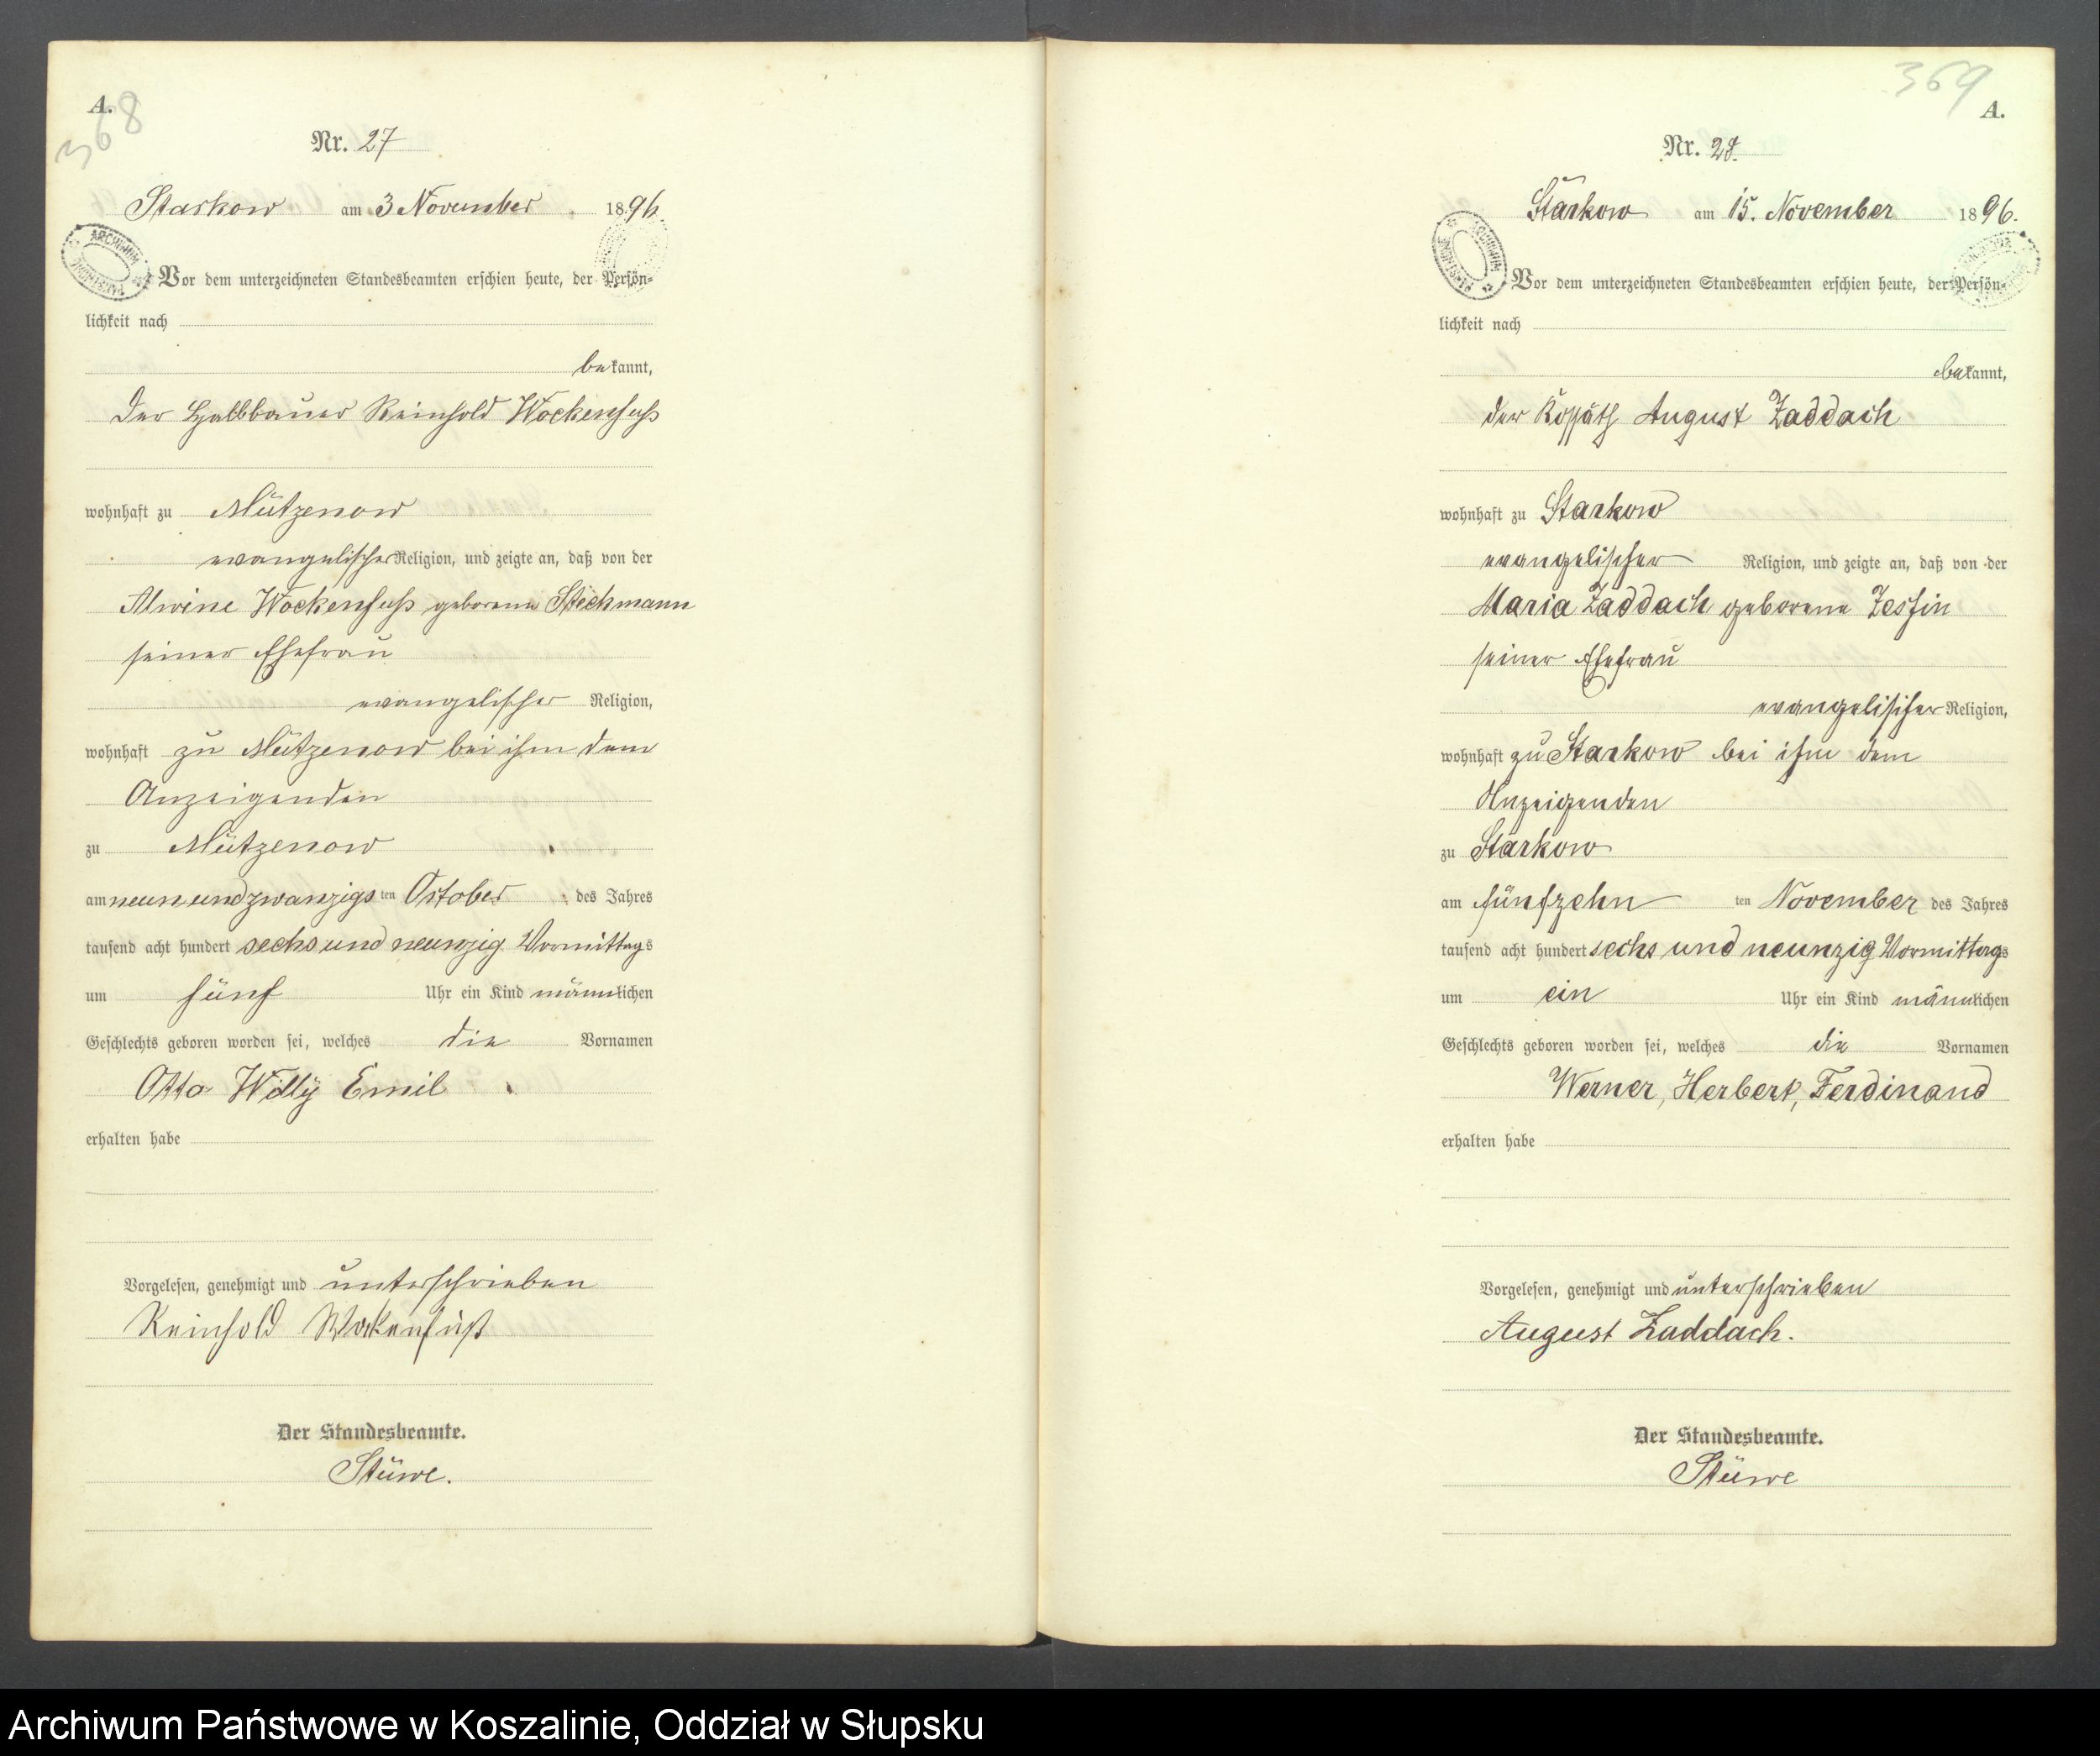 A.
368
Nr. 27
Starkow am 3 November 1896.
Vor dem unterzeichneten Standesbeamten erschien heute, der Persön-
lichkeit nach
bekannt,
der Halbbauer Reinhold Wockenfuß
wohnhaft zu Mützenow
evangelischer Religion, und zeigte an, daß von der
Alwine Wockenfuß geborene Steckmann
seiner Ehefrau
evangelischer Religion,
wohnhaft zu Mützenow bei ihm dem
Anzeigenden
zu Mützenow
am neun und zwanzigsten October des Jahres
tausend acht hundert sechs und neunzig Vormittags
um fünf Uhr ein Kind männlichen
Geschlechts geboren worden sei, welches die Vornamen
Otto Willy Emil
erhalten habe
Vorgelesen, genehmigt und unterschrieben
Reinhold Wokenfüß
Der Standesbeamte.
Stüwe.
369
A.
Nr. 28.
Starkow am 15. November 1896.
Vor dem unterzeichneten Standesbeamten erschien heute, der Persön-
lichkeit nach
bekannt,
der Koßäth August Zaddach
wohnhaft zu Starkow
evangelischer Religion, und zeigte an, daß von der
Maria Zaddach geborene Zessin
seiner Ehefrau
evangelischer Religion,
wohnhaft zu Starkow bei ihm dem
Anzeigenden
zu Starkow
am fünfzehn ten November des Jahres
tausend acht hundert sechs und neunzig Vormittags
um ein Uhr ein Kind männlichen
Geschlechts geboren worden sei, welches die Vornamen
Werner, Herbert, Ferdinand
erhalten habe
Vorgelesen, genehmigt und unterschrieben
August Zaddach.
Der Standesbeamte.
Stüwe
Archiwum Państwowe w Koszalinie, Oddział w Słupsku